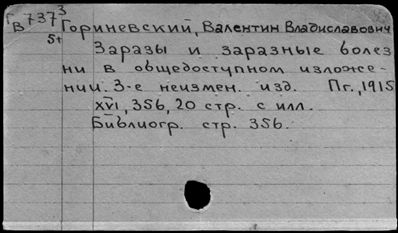 Г 7373
В
5+
Гориневский, Валентин Владиславович
Заразы и заразные болез
ни в общедоступном изложе-
нии. 3-е неизмен. изд. Пг., 1915
XVI, 356, 20 стр. с илл.
Библиогр. стр. 356.